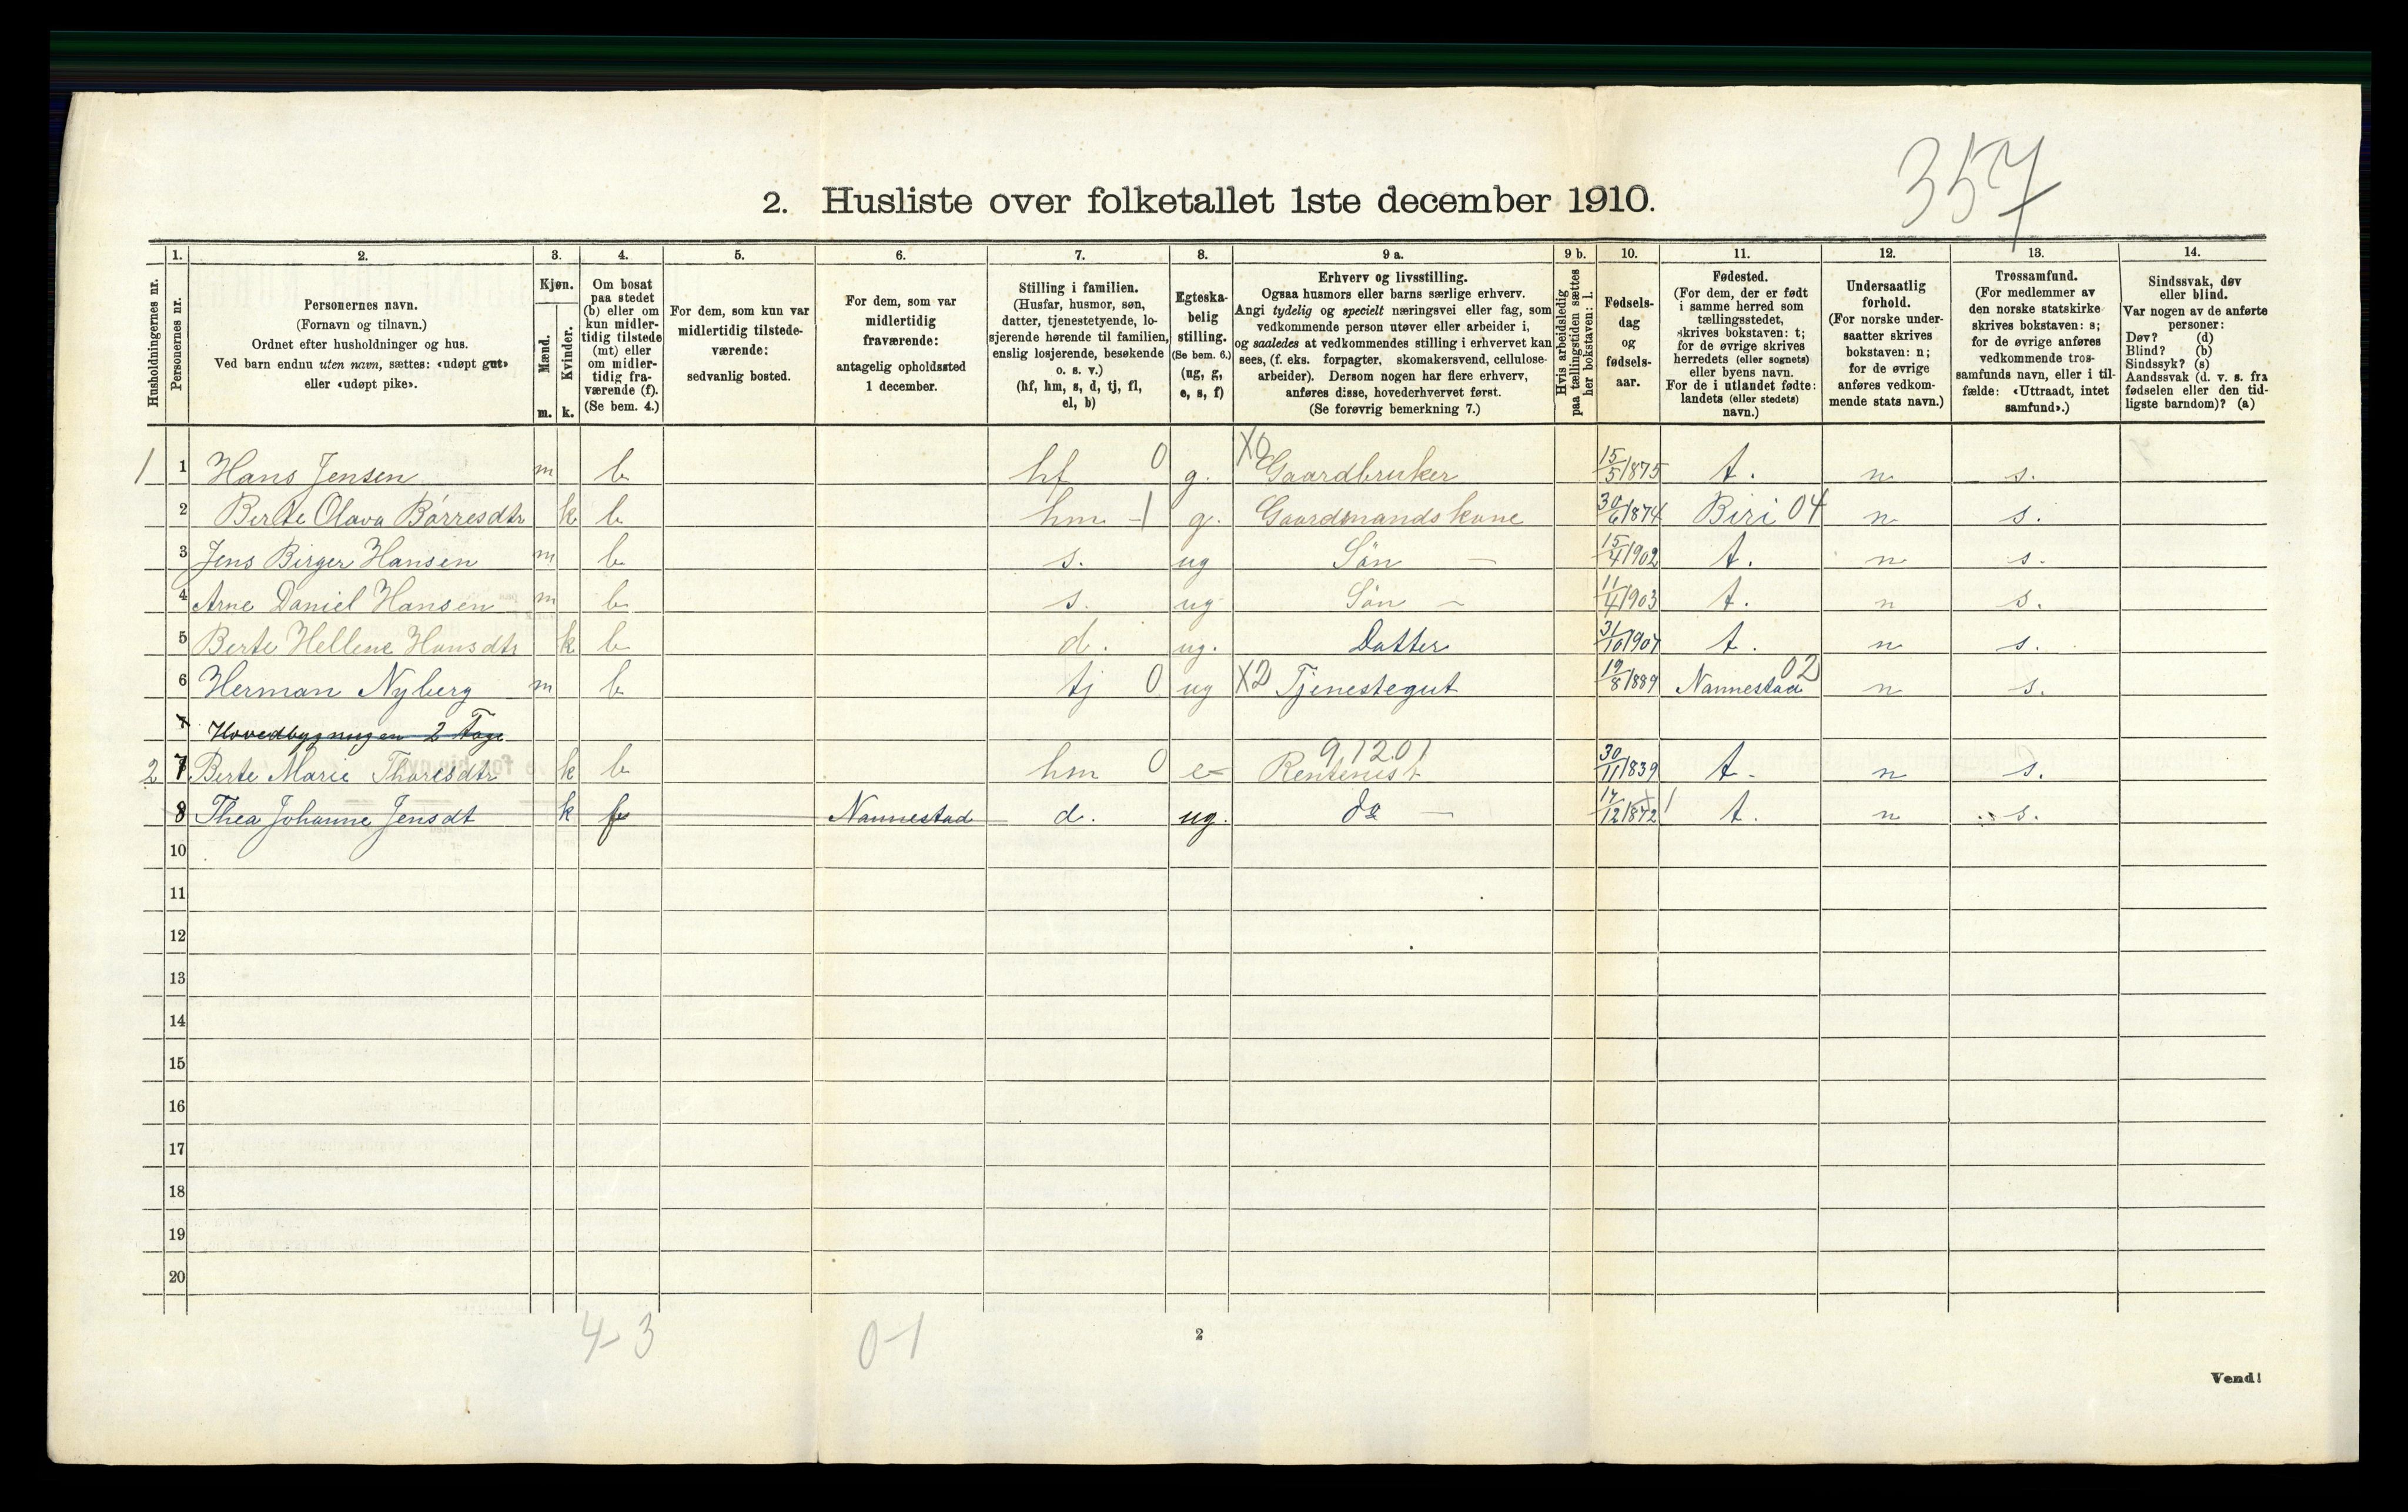 357
2. Husliste over folketallet 1ste december 1910.
Husholdningernes nr.
1.
Personernes nr.
2.
Personernes navn.
(Fornavn og tilnavn.)
Ordnet efter husholdninger og hus.
Ved barn endnu uten navn, sættes: «udøpt gut»
eller «udøpt pike».
3.
Kjøn.
Mænd.
m.
Kvinder.
k.
4.
Om bosat
paa stedet
(b) eller om
kun midler-
tidig tilstede
(mt) eller
om midler-
tidig fra-
værende (f).
(Se bem. 4.)
5.
For dem, som kun var
midlertidig tilstede-
værende:
sedvanlig bosted.
6.
For dem, som var
midlertidig
fraværende:
antagelig opholdssted
1 december.
7.
Stilling i familien.
(Husfar, husmor, søn,
datter, tjenestetyende, lo-
sjerende hørende til familien,
enslig losjerende, besøkende
o. s. v.)
(hf, hm, s, d, tj, fl,
el, b)
8.
Egteska-
belig
stilling.
(Se bem. 6.)
(ug, g,
e, s, f)
9 a.
Erhverv og livsstilling.
Ogsaa husmors eller barns særlige erhverv.
Angi tydelig og specielt næringsvei eller fag, som
vedkommende person utøver eller arbeider i,
og saaledes at vedkommendes stilling i erhvervet kan
sees, (f. eks. forpagter, skomakersvend, cellulose-
arbeider). Dersom nogen har flere erhverv,
anføres disse, hovederhvervet først.
(Se forøvrig bemerkning 7.)
9 b.
Hvis arbeidsledig
paa tællingstiden sættes
her bokstaven: l.
10.
Fødsels-
dag
og
fødsels-
aar.
11.
Fødested.
(For dem, der er født
i samme herred som
tællingsstedet,
skrives bokstaven: t;
for de øvrige skrives
herredets (eller sognets)
eller byens navn.
For de i utlandet fødte:
landets (eller stedets)
navn.)
12.
Undersaatlig
forhold.
(For norske under-
saatter skrives
bokstaven: n;
for de øvrige
anføres vedkom-
mende stats navn.)
13.
Trossamfund.
(For medlemmer av
den norske statskirke
skrives bokstaven: s;
for de øvrige anføres
vedkommende tros-
samfunds navn, eller i til-
fælde: «Uttraadt, intet
samfund».)
14.
Sindssvak, døv
eller blind.
Var nogen av de anførte
personer:
Døv? (d)
Blind? (b)
Sindssyk? (s)
Aandssvak (d. v. s. fra
fødselen eller den tid-
ligste barndom)? (a)
1 1 Hans Jensen m b hf 0 g. X0 Gaardbruker 15/5 1875 t. n s.
2 Berte Olava Børresdtr k b hm -1 g. Gaardmandskone 30/6 1874 Biri 04 n s.
3 Jens Birger Hansen m b s. ug Søn — 15/4 1902 t. n s.
4 Arne Daniel Hansen m b s. ug Søn — 11/4 1903 t. n s.
5 Berte Hellene Hansdtr k b d. ug. Datter 31/10 1907 t. n s.
6 Herman Nyberg m b tj 0 ug X2 Tjenestegut 19/8 1889 Nannestad 02 n s.
Hovedbygningen 2 Tage
2 7 Berte Marie Thoresdtr k b hm 0 e Rentenist 9,1201 30/11 1839 t. n s.
8 Thea Johanne Jensdt k f Nannestad d. ug. do — 17/12 1872 t. n s.
10
11
12
13
14
15
16
17
18
19
20
4-3 0-1
2
Vend!